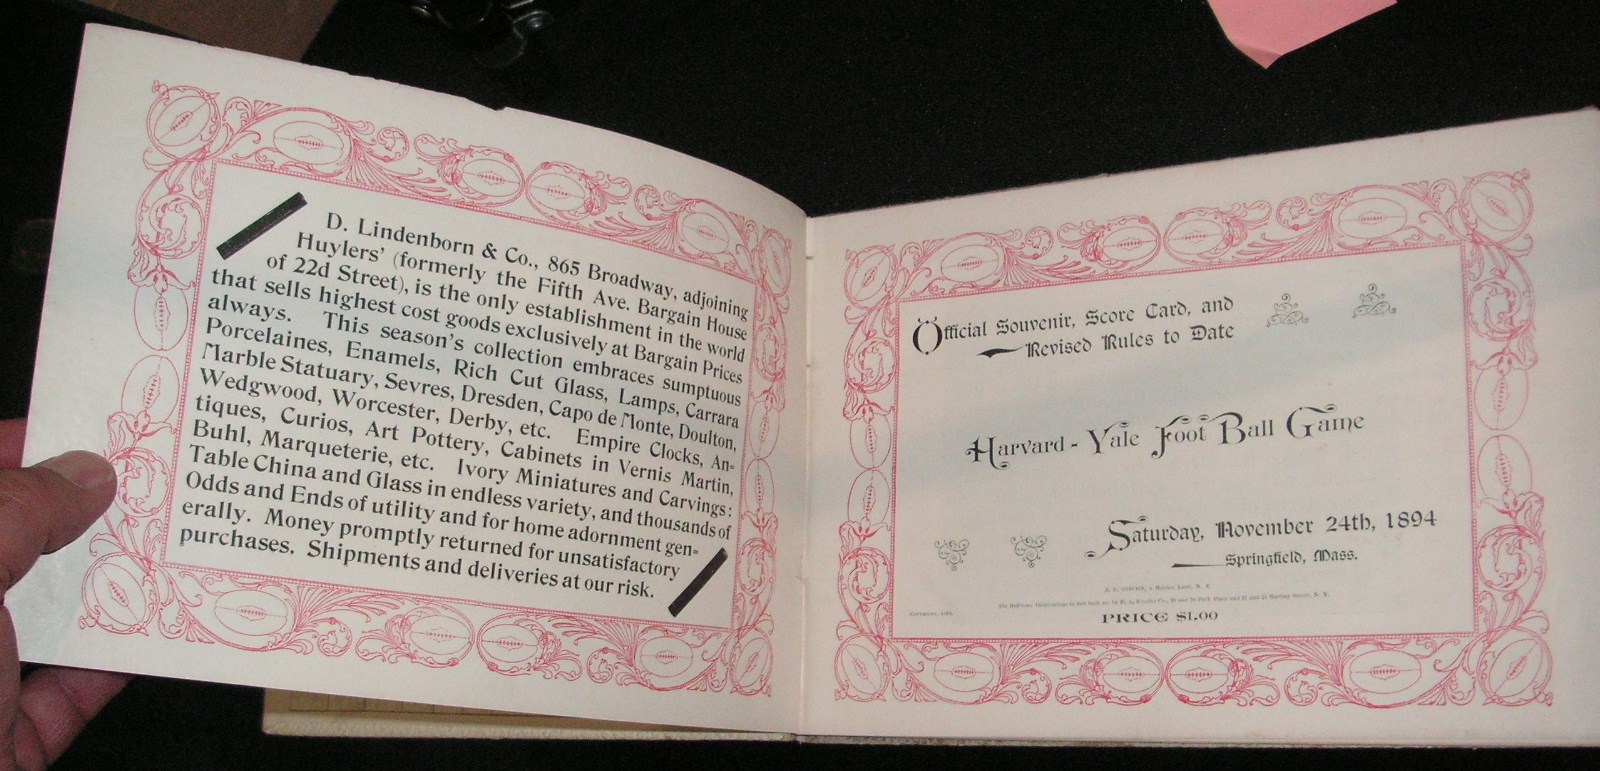 D. Lindenborn & Co., 865 Broadway, adjoining
Huylers' (formerly the Fifth Ave. Bargain House
of 22d Street), is the only establishment in the world
that sells highest cost goods exclusively at Bargain Prices
always. This season's collection embraces sumptuous
Porcelaines, Enamels, Rich Cut Glass, Lamps, Carrara
Marble Statuary, Sevres, Dresden, Capo de Monte, Doulton,
Wedgwood, Worcester, Derby, etc. Empire Clocks, An-
tiques, Curios, Art Pottery, Cabinets in Vernis Martin,
Buhl, Marqueterie, etc. Ivory Miniatures and Carvings:
Table China and Glass in endless variety, and thousands of
Odds and Ends of utility and for home adornment gen-
erally. Money promptly returned for unsatisfactory
purchases. Shipments and deliveries at our risk.
Official Souvenir, Score Card, and
Revised Rules to Date
Harvard - Yale Foot Ball Game
Saturday, November 24th, 1894
Springfield, Mass.
PRICE $1.00